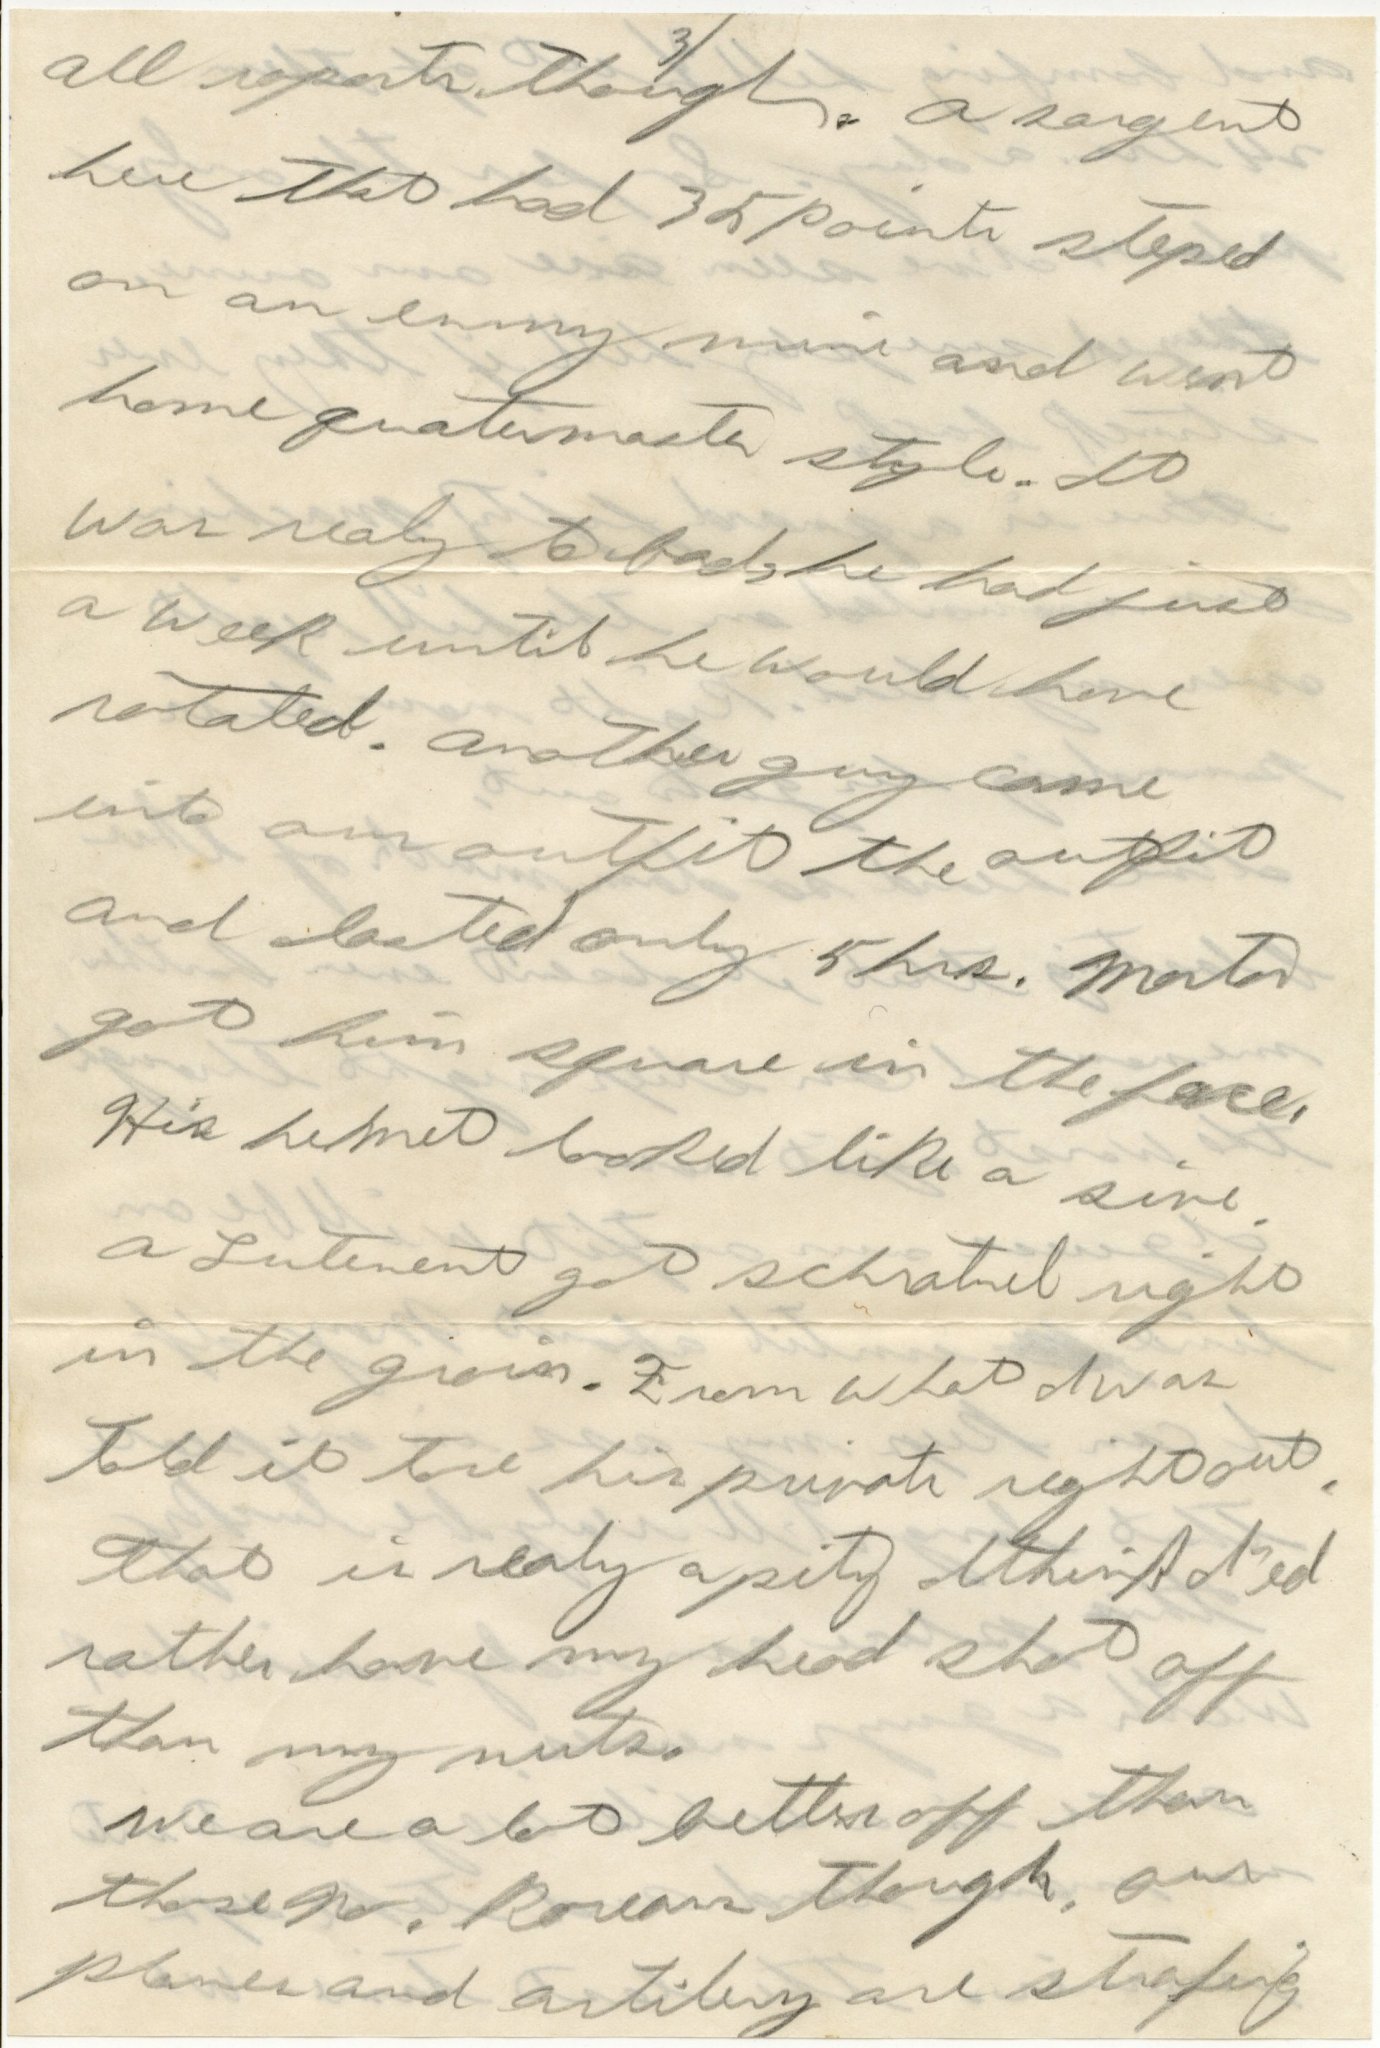 3/
all reports though. A sargent
here that had 35 points steped
on an enmy mine and went
home quatermaster style. It
was realy to bad, he had just
a week until he would have
rotated. Another guy came
into our outfit the outfit
and lasted only 5 hrs. Mortar
got him square in the face.
His helmet looked like a sive.
A Lutenent got schratnel right
in the groin. From what I was
told it tore his privats right out.
That is realy a pity I think I'ed
rather have my head shot off
than my nuts.
We are a lot better off than
those No. Koreans though, our
planes and artilery are strafing